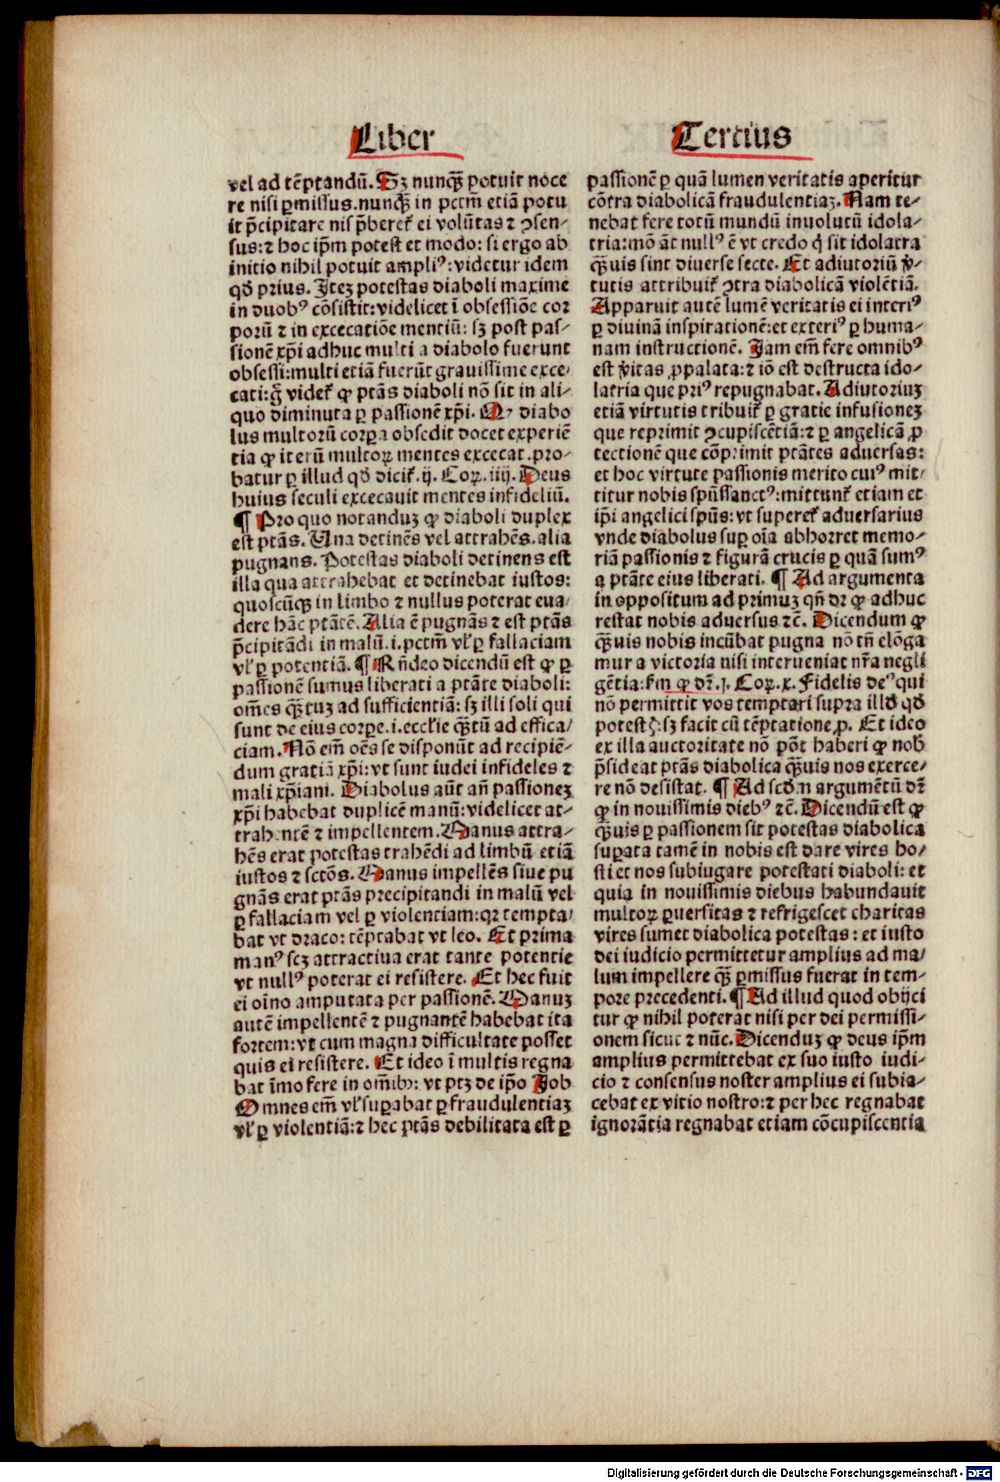 Liber
Tercius
vel ad tẽptandũ. Sꝫ nunqͣꝫ potuit noce
re nisi ꝑmissus. nunqͣꝫ in pctm̃ etiã potu
it p̃cipitare nis p̃beret᷑ ei volũtas ⁊ ꝯsen-
sus: ⁊ hoc ip̃m potest et modo: si ergo ab
initio nihil potuit ampliꝰ: videtur idem
qđ prius. Itez potestas diaboli maxime
in duobꝰ cõsistit: videlicet ĩ obsessiõe cor
porũ ⁊ in excecatiõe mentiũ: sꝫ post pas-
sionẽ xp̃i adhuc multi a diabolo fuerunt
obsessi: multi etiã fuerũt grauissime exce-
cati: g̃ videt᷑ ꝙ ptãs diaboli nõ sit in ali-
quo diminuta ꝑ passionẽ xp̃i. Ꝙ diabo
lus multorũ corꝑa obsedit docet experiẽ
tia ꝙ iterũ multoꝝ mentes excecat. pro-
batur ꝑ illud qđ dicit᷑. ij. Coꝝ. iiij. Deus
huius seculi excecauit mentes infideliũ.
¶ Pro quo notanduꝫ ꝙ diaboli duplex
est ptãs. Una detinẽs vel attrahẽs. alia
pugnans. Potestas diaboli detinens est
illa qua attrahebat et detinebat iustos:
quoscũqꝫ in limbo ⁊ nullus poterat eua-
dere hãc ptãtẽ. Alia ẽ pugnãs ⁊ est ptãs
p̃cipitãdi in malũ. i. pctm̃ vł ꝑ fallaciam
vł ꝑ potentiã. ¶ Rñdeo dicendũ est ꝙ ꝑ
passionẽ sumus liberati a ptãte diaboli:
om̃es qͣꝫtuꝫ ad sufficientiã: sꝫ illi soli qui
sunt de eius corꝑe. i. eccłie qͣꝫtũ ad effica-
ciam. Nõ em̃ oẽs se disponũt ad recipiẽ-
dum gratiã xp̃i: vt sunt iudei infideles ⁊
mali xp̃iani. Diabolus aũt añ passionez
xp̃i habebat duplicẽ manũ: videlicet at-
trahentẽ ⁊ impellentem. Manus attra-
hẽs erat potestas trahẽdi ad limbũ etiã
iustos ⁊ sctõs. Manus impellẽs siue pu
gnãs erat ptãs precipitandi in malũ vel
ꝑ fallaciam vel ꝑ violentiam: qꝛ tempta-
bat vt draco: tẽptabat vt leo. Et prima
manꝰ scꝫ attractiua erat tante potentie
vt nullꝰ poterat ei resistere. Et hec fuit
ei oĩno amputata per passionẽ. Manuꝫ
autẽ impellentẽ ⁊ pugnantẽ habebat ita
fortem: vt cum magna difficultate posset
quis ei resistere. Et ideo ĩ multis regna
bat ĩmo fere in om̃ibꝫ: vt ptꝫ de ip̃o Job
Omnes em̃ vł suꝑabat ꝑ fraudulentiaꝫ
vł ꝑ violentiã: ⁊ hec ptãs debilitata est ꝑ
passionẽ ꝑ quã lumen veritatis aperitur
cõtra diabolicã fraudulentiaꝫ. Nam te-
nebat fere totũ mundũ inuolutũ idola-
tria: mõ ãt nullꝰ ẽ vt credo q̇ sit idolatra
qͣꝫuis sint diuerse secte. Et adiutoriũ v̾-
tutis attribuit᷑ ꝯtra diabolicã violẽtiã.
Apparuit autẽ lumẽ veritatis ei interiꝰ
ꝑ diuinã inspirationẽ: et exteriꝰ ꝑ huma-
nam instructionẽ. Jam em̃ fere omnibꝰ
est v̾itas ꝓpalata: ⁊ iõ est destructa ido-
latria que priꝰ repugnabat. Adiutoriuꝫ
etiã virtutis tribuit᷑ ꝑ gratie infusioneꝫ
que reprimit ꝯcupiscẽtiã: ⁊ ꝑ angelicã ꝓ
tectionẽ que cõprimit ptãtes aduersas:
et hoc virtute passionis merito cuiꝰ mit-
titur nobis spũssanctꝰ: mittunt᷑ etiam et
ip̃i angelici spũs: vt superet᷑ aduersarius
vnde diabolus suꝑ oĩa abhorret memo-
riã passionis ⁊ figurã crucis ꝑ quã sumꝰ
a ptãte eius liberati. ¶ Ad argumenta
in oppositum ad primuꝫ qñ dꝛ ꝙ adhuc
restat nobis aduersus ⁊c̃. Dicendum ꝙ
qͣꝫuis nobis incũbat pugna nõ tñ elõga
mur a victoria nisi interueniat nr̃a negli
gẽtia: ẜm ꝙ dꝛ̃. j. Coꝝ. x. Fidelis deꝰ qui
nõ permittit vos temptari supra illđ qđ
potestꝭ: sꝫ facit cũ tẽptatione ꝓ. Et ideo
ex illa auctoritate nõ põt haberi ꝙ nob̃
p̃sideat ptãs diabolica qͣꝫuis nos exerce-
re nõ desistat. ¶ Ad scđm argumẽtũ dꝛ̃
ꝙ in nouissimis diebꝰ ⁊c̃. Dicendũ est ꝙ
qͣꝫuis ꝑ passionem sit potestas diabolica
suꝑata tamẽ in nobis est dare vires ho-
sti et nos subiugare potestati diaboli: et
quia in nouissimis diebus habundauit
multoꝝ ꝑuersitas ⁊ refrigescet charitas
vires sumet diabolica potestas: et iusto
dei iudicio permittetur amplius ad ma-
lum impellere qͣꝫ ꝑmissus fuerat in tem-
pore precedenti. ¶ Ad illud quod obijci
tur ꝙ nihil poterat nisi per dei permissi-
onem sicut ⁊ nũc. Dicenduꝫ ꝙ deus ip̃m
amplius permittebat ex suo iusto iudi-
cio ⁊ consensus noster amplius ei subia-
cebat ex vitio nostro: ⁊ per hec regnabat
ignorãtia regnabat etiam cõcupiscentia
Digitalisierung gefördert durch die Deutsche Forschungsgemeinschaft - DFG